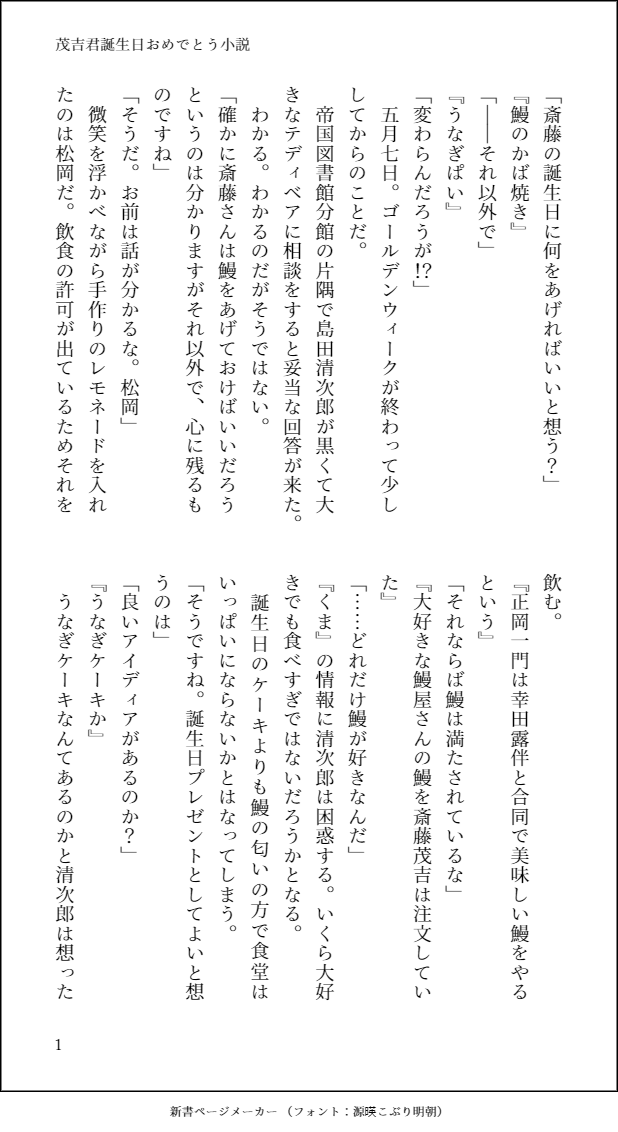 茂吉君誕生日おめでとう小説
「斎藤の誕生日に何をあげればいいと想う？」
『鰻のかば焼き』
「――それ以外で」
『うなぎぱい』
「変わらんだろうが!?」
　五月七日。ゴールデンウィークが終わって少し
してからのことだ。
　帝国図書館分館の片隅で島田清次郎が黒くて大
きなテディベアに相談をすると妥当な回答が来た。
　わかる。わかるのだがそうではない。
「確かに斎藤さんは鰻をあげておけばいいだろう
というのは分かりますがそれ以外で、心に残るも
のですね」
「そうだ。お前は話が分かるな。松岡」
　微笑を浮かべながら手作りのレモネードを入れ
たのは松岡だ。飲食の許可が出ているためそれを
飲む。
『正岡一門は幸田露伴と合同で美味しい鰻をやる
という』
「それならば鰻は満たされているな」
『大好きな鰻屋さんの鰻を斎藤茂吉は注文してい
た』
「……どれだけ鰻が好きなんだ」
『くま』の情報に清次郎は困惑する。いくら大好
きでも食べすぎではないだろうかとなる。
　誕生日のケーキよりも鰻の匂いの方で食堂は
いっぱいにならないかとはなってしまう。
「そうですね。誕生日プレゼントとしてよいと想
うのは」
「良いアイディアがあるのか？」
『うなぎケーキか』
　うなぎケーキなんてあるのかと清次郎は想った
1
新書ページメーカー（フォント：源暎こぶり明朝）